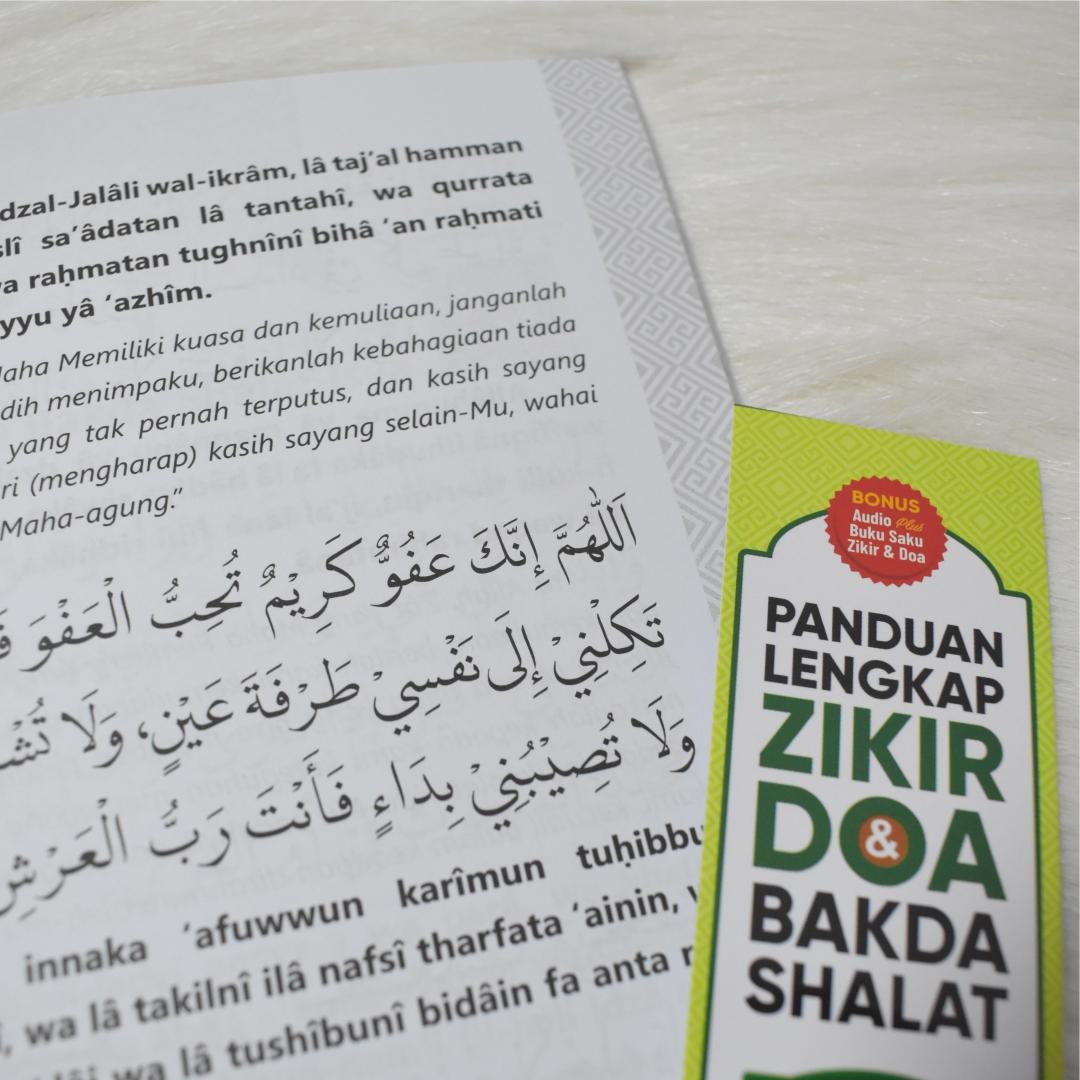 dzal-Jalâli wal-ikrâm, lâ taj'al hamman
slî sa'âdatan lâ tantahî, wa qurrata
wa raḥmatan tughnînî bihâ 'an raḥmati
yyu yâ 'azhîm.
Maha Memiliki kuasa dan kemuliaan, janganlah
dih menimpaku, berikanlah kebahagiaan tiada
yang tak pernah terputus, dan kasih sayang
ri (mengharap) kasih sayang selain-Mu, wahai
Maha-agung."
اَللّٰهُمَّ إِنَّكَ عَفُوٌّ كَرِيْمٌ تُحِبُّ الْعَفْوَ
تَكِلْنِيْ إِلَى نَفْسِيْ طَرْفَةَ عَيْنٍ، وَلَا تُشْ
وَلَا تُصِيْبُنِيْ بِدَاءٍ فَأَنْتَ رَبُّ الْعَرْشِ
innaka 'afuwwun karîmun tuḥibbu
î, wa lâ takilnî ilâ nafsî tharfata 'ainin,
wa lâ tushîbunî bidâin fa anta
BONUS
Audio Plus
Buku Saku
Zikir & Doa
PANDUAN
LENGKAP
ZIKIR
DOA &
BAKDA
SHALAT